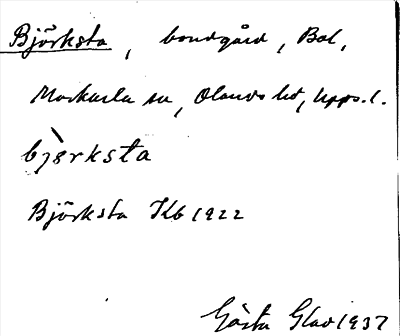 Björksta, bondgård, Bol,
Morkarla sn, Olands hd, Upps. l.
bjerksta
Björksta Kb 1922
Gösta Glad 1937